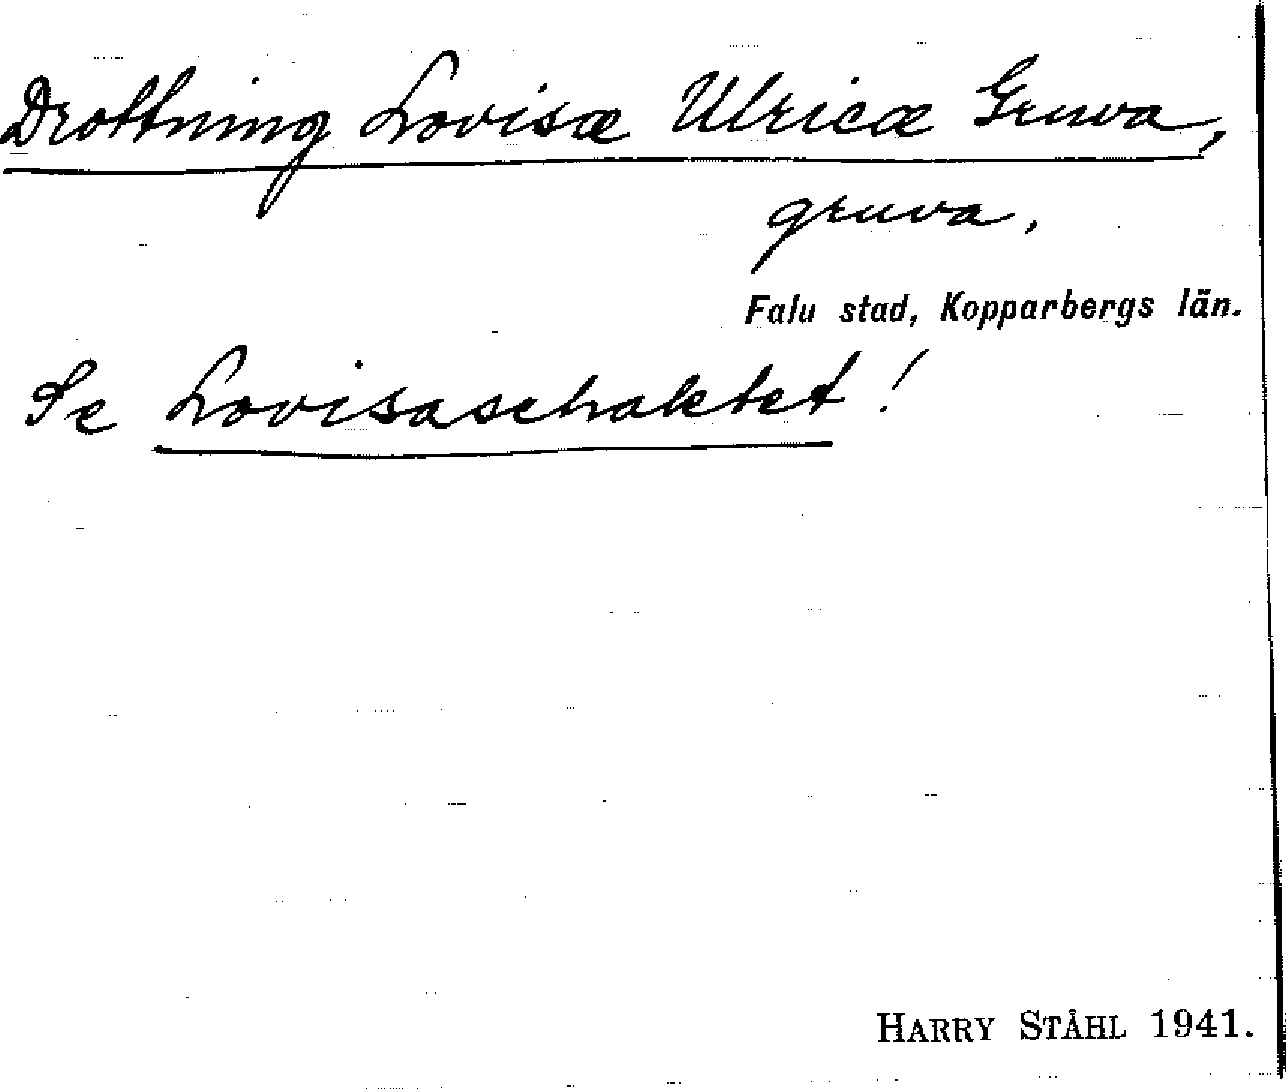 Drottning Lovisæ Ulricæ Gruva,
gruva.
Falu stad, Kopparbergs län.
Se Lovisaschaktet!
HARRY STÅHL 1941.